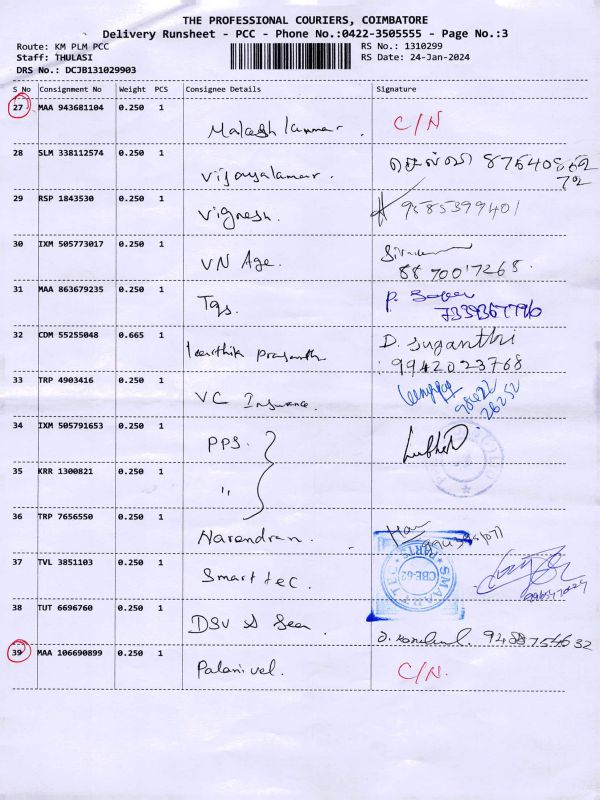 THE PROFESSIONAL COURIERS, COIMBATORE
Delivery Runsheet - PCC - Phone No.:0422-3505555 - Page No.:3
Route: KM PLM PCC RS No.: 1310299
Staff: THULASI RS Date: 24-Jan-2024
DRS No.: DCJB131029903
S No Consignment No Weight PCS Consignee Details Signature
27 MAA 943681104 0.250 1
C/N
28 SLM 338112574 0.250 1
Vijayalamar.
29 RSP 1843530 0.250 1
Vignesh. 9585399401
30 IXM 505773017 0.250 1
VN Age.
8870017268.
31 MAA 863679235 0.250 1
Tgs.
32 CDM 55255048 0.665 1 D. Suganthi
Karthik Prasanth : 9942023768
33 TRP 4903416 0.250 1
VC Insurance.
34 IXM 505791653 0.250 1
PPS.
35 KRR 1300821 0.250 1
"
36 TRP 7656550 0.250 1
Narendran.
37 TVL 3851103 0.250 1
Smart tec. SMARTTEC CBE-62
38 TUT 6696760 0.250 1
9488754632
39 MAA 106690899 0.250 1
Palanivel. C/N.